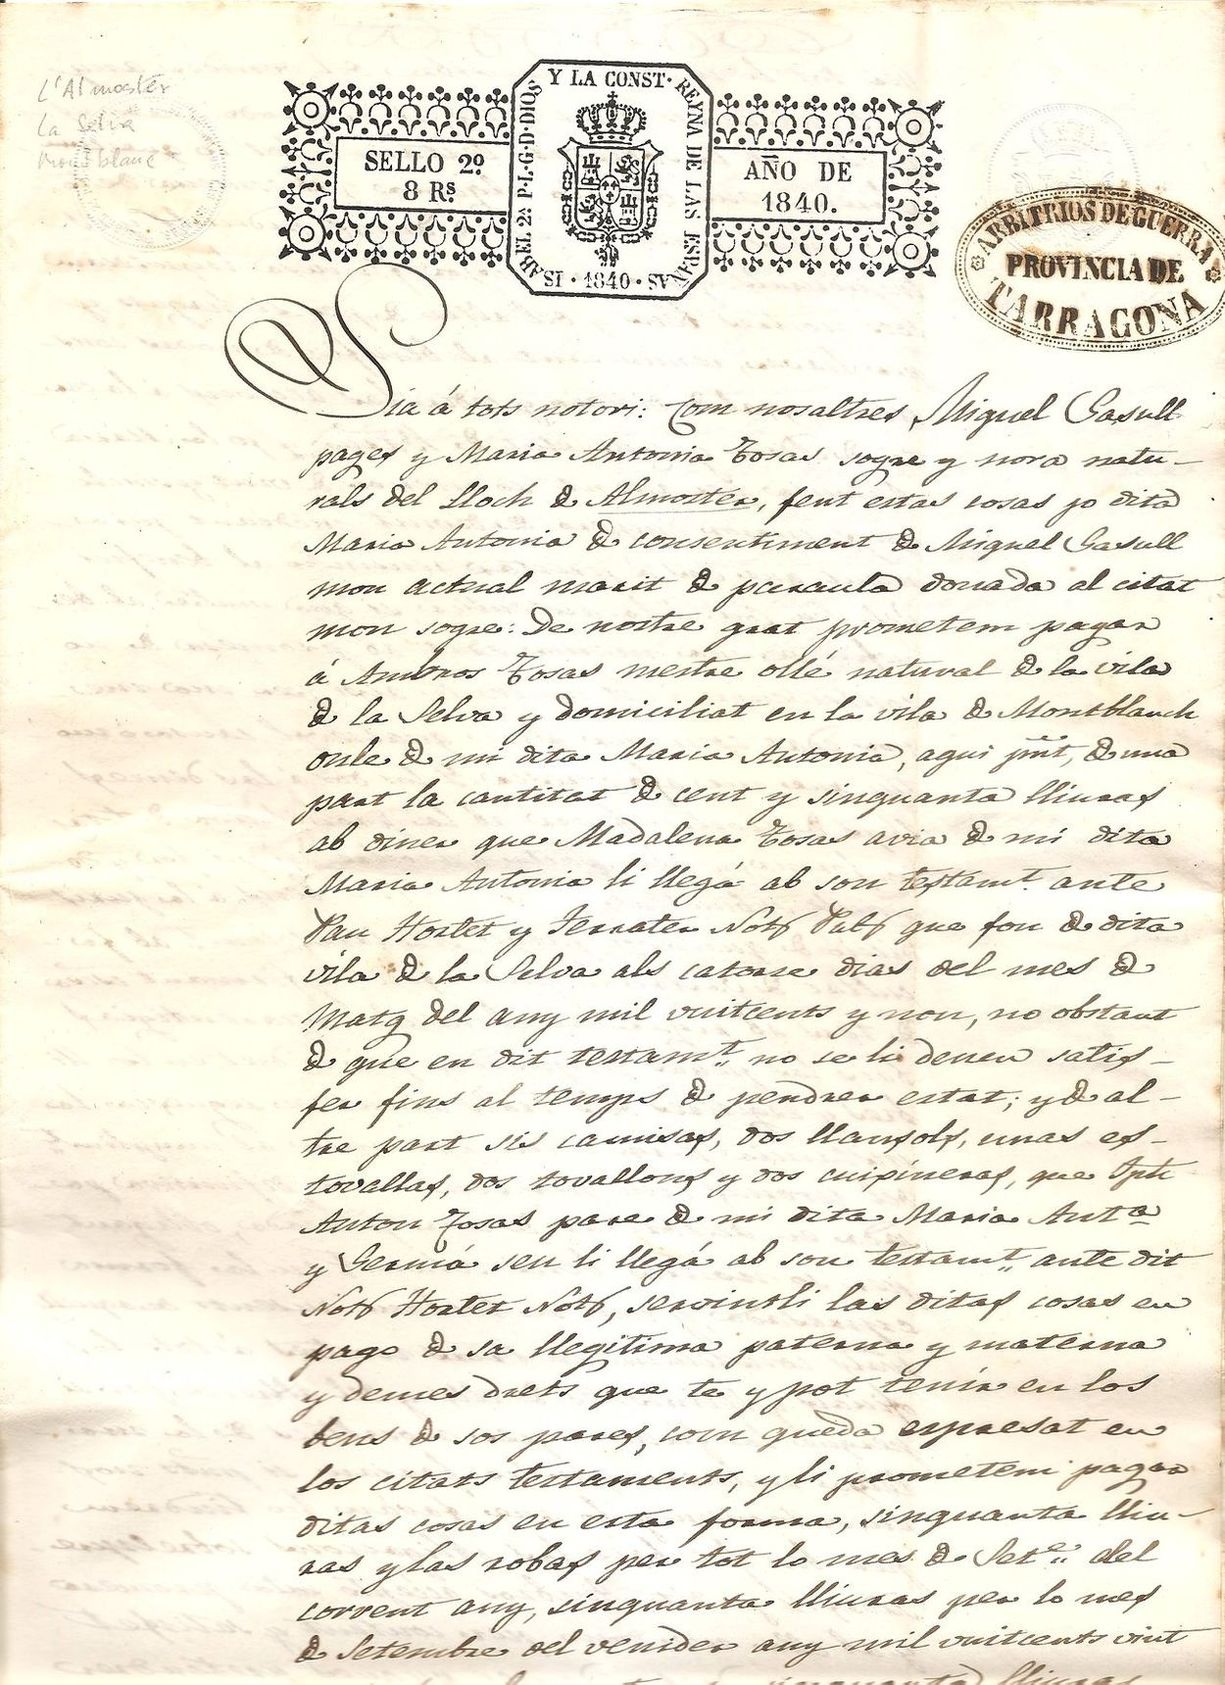 L'Almoster
La Selva
Montblanc
ISABEL 2ª P·L·G·D·DIOS Y LA CONST· REYNA DE LAS ESPAÑAS · 1840 ·
SELLO 2º
8 Rs.
AÑO DE
1840.
ARBITRIOS DE GUERRA
PROVINCIA DE
TARRAGONA
Sia á tots notori: Com nosaltres Miquel Gasull
pages y Maria Antonia Tosas sogre y nora natu-
rals del Lloch de Almoster, fent estas cosas jo dita
Maria Antonia de consentiment de Miquel Gasull
mon actual marit de paraula donada al citat
mon sogre: De nostre grat prometem pagar
á Ambros Tosas mestre ollé natural de la vila
de la Selva y domiciliat en la vila de Montblanch
onle de mi dita Maria Antonia, aqui pnt, de una
part la cantitat de cent y sinquanta lliuras
ab diner que Madalena Tosas avia de mi dita
Maria Antonia li llegá ab son testamt. ante
Pau Hortet y Ferrater Noty Puby que fou de dita
vila de la Selva als catorse dias del mes de
Matg del any mil vuitcents y nou, no obstant
de que en dit testamt. no se li deuen satis-
fer fins al temps de pendrer estat; y de al-
tre part sis camisas, dos llansols, unas es-
tovallas, dos tovallons y dos cuixineras, que
Anton Tosas pare de mi dita Maria Anta
y Germá seu li llegá ab son testamt. ante dit
Noty Hortet Noty, servintli las ditas cosas en
pago de sa llegitima paterna y materna
y demes drets que te y pot tenir en los
bens de sos pares, com queda espresat en
los citats testaments, y li prometem pagar
ditas cosas en esta forma, sinquanta lliu-
ras y las robas per tot lo mes de Sete. del
corrent any, sinquanta lliuras per lo mes
de Setembre del venider any mil vuitcents vint
sinquanta lliuras